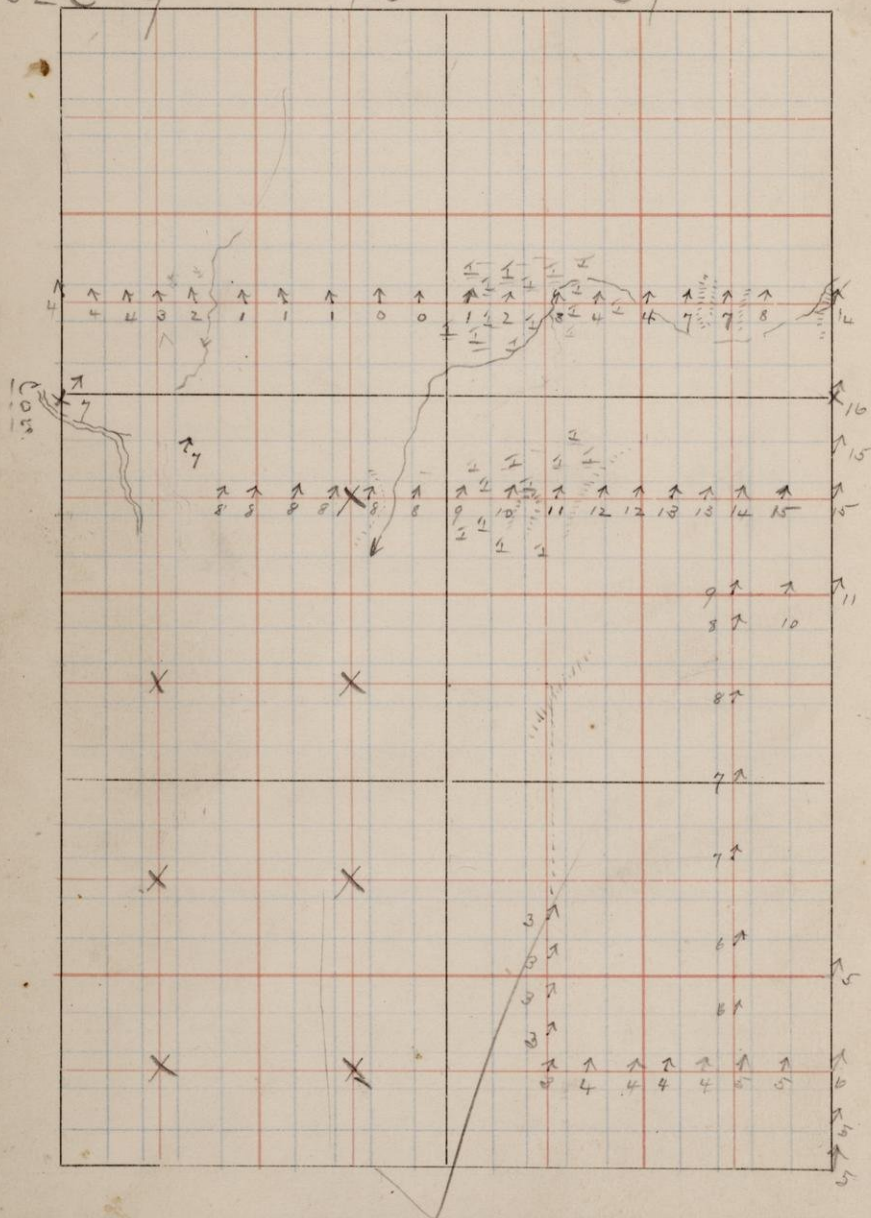 4 4 4 3 2 1 1 1 0 0 1 2 3 4 4 7 7 8 14
7 16
7 15
8 8 8 8 8 8 9 10 11 12 12 13 13 14 15 15
9 11
8 10
8
7
7
3
6
3
5
3
6
3
3 4 4 4 4 5 5 6
5
5